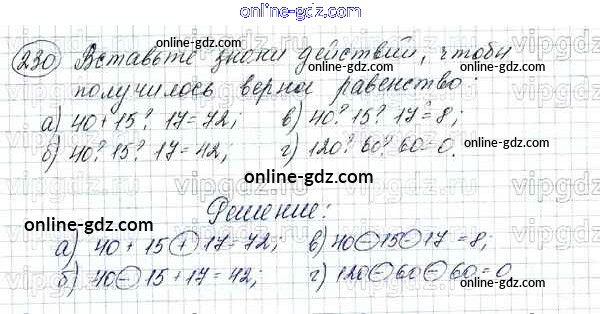 online-gdz.com
230 Вставьте знаки действий, чтобы
online-gdz.com
получилось верное равенство:
а) 40 + 15 ? 17 = 72; в) 40 ? 15 ? 17 = 8;
online-gdz.com
б) 40 ? 15 ? 17 = 42; г) 120 ? 60 ? 60 = 0.
online-gdz.com
Решение:
online-gdz.com
а) 40 + 15 + 17 = 72; в) 40 - 15 - 17 = 8;
б) 40 - 15 + 17 = 42; г) 120 - 60 - 60 = 0
online-gdz.com
online-gdz.com